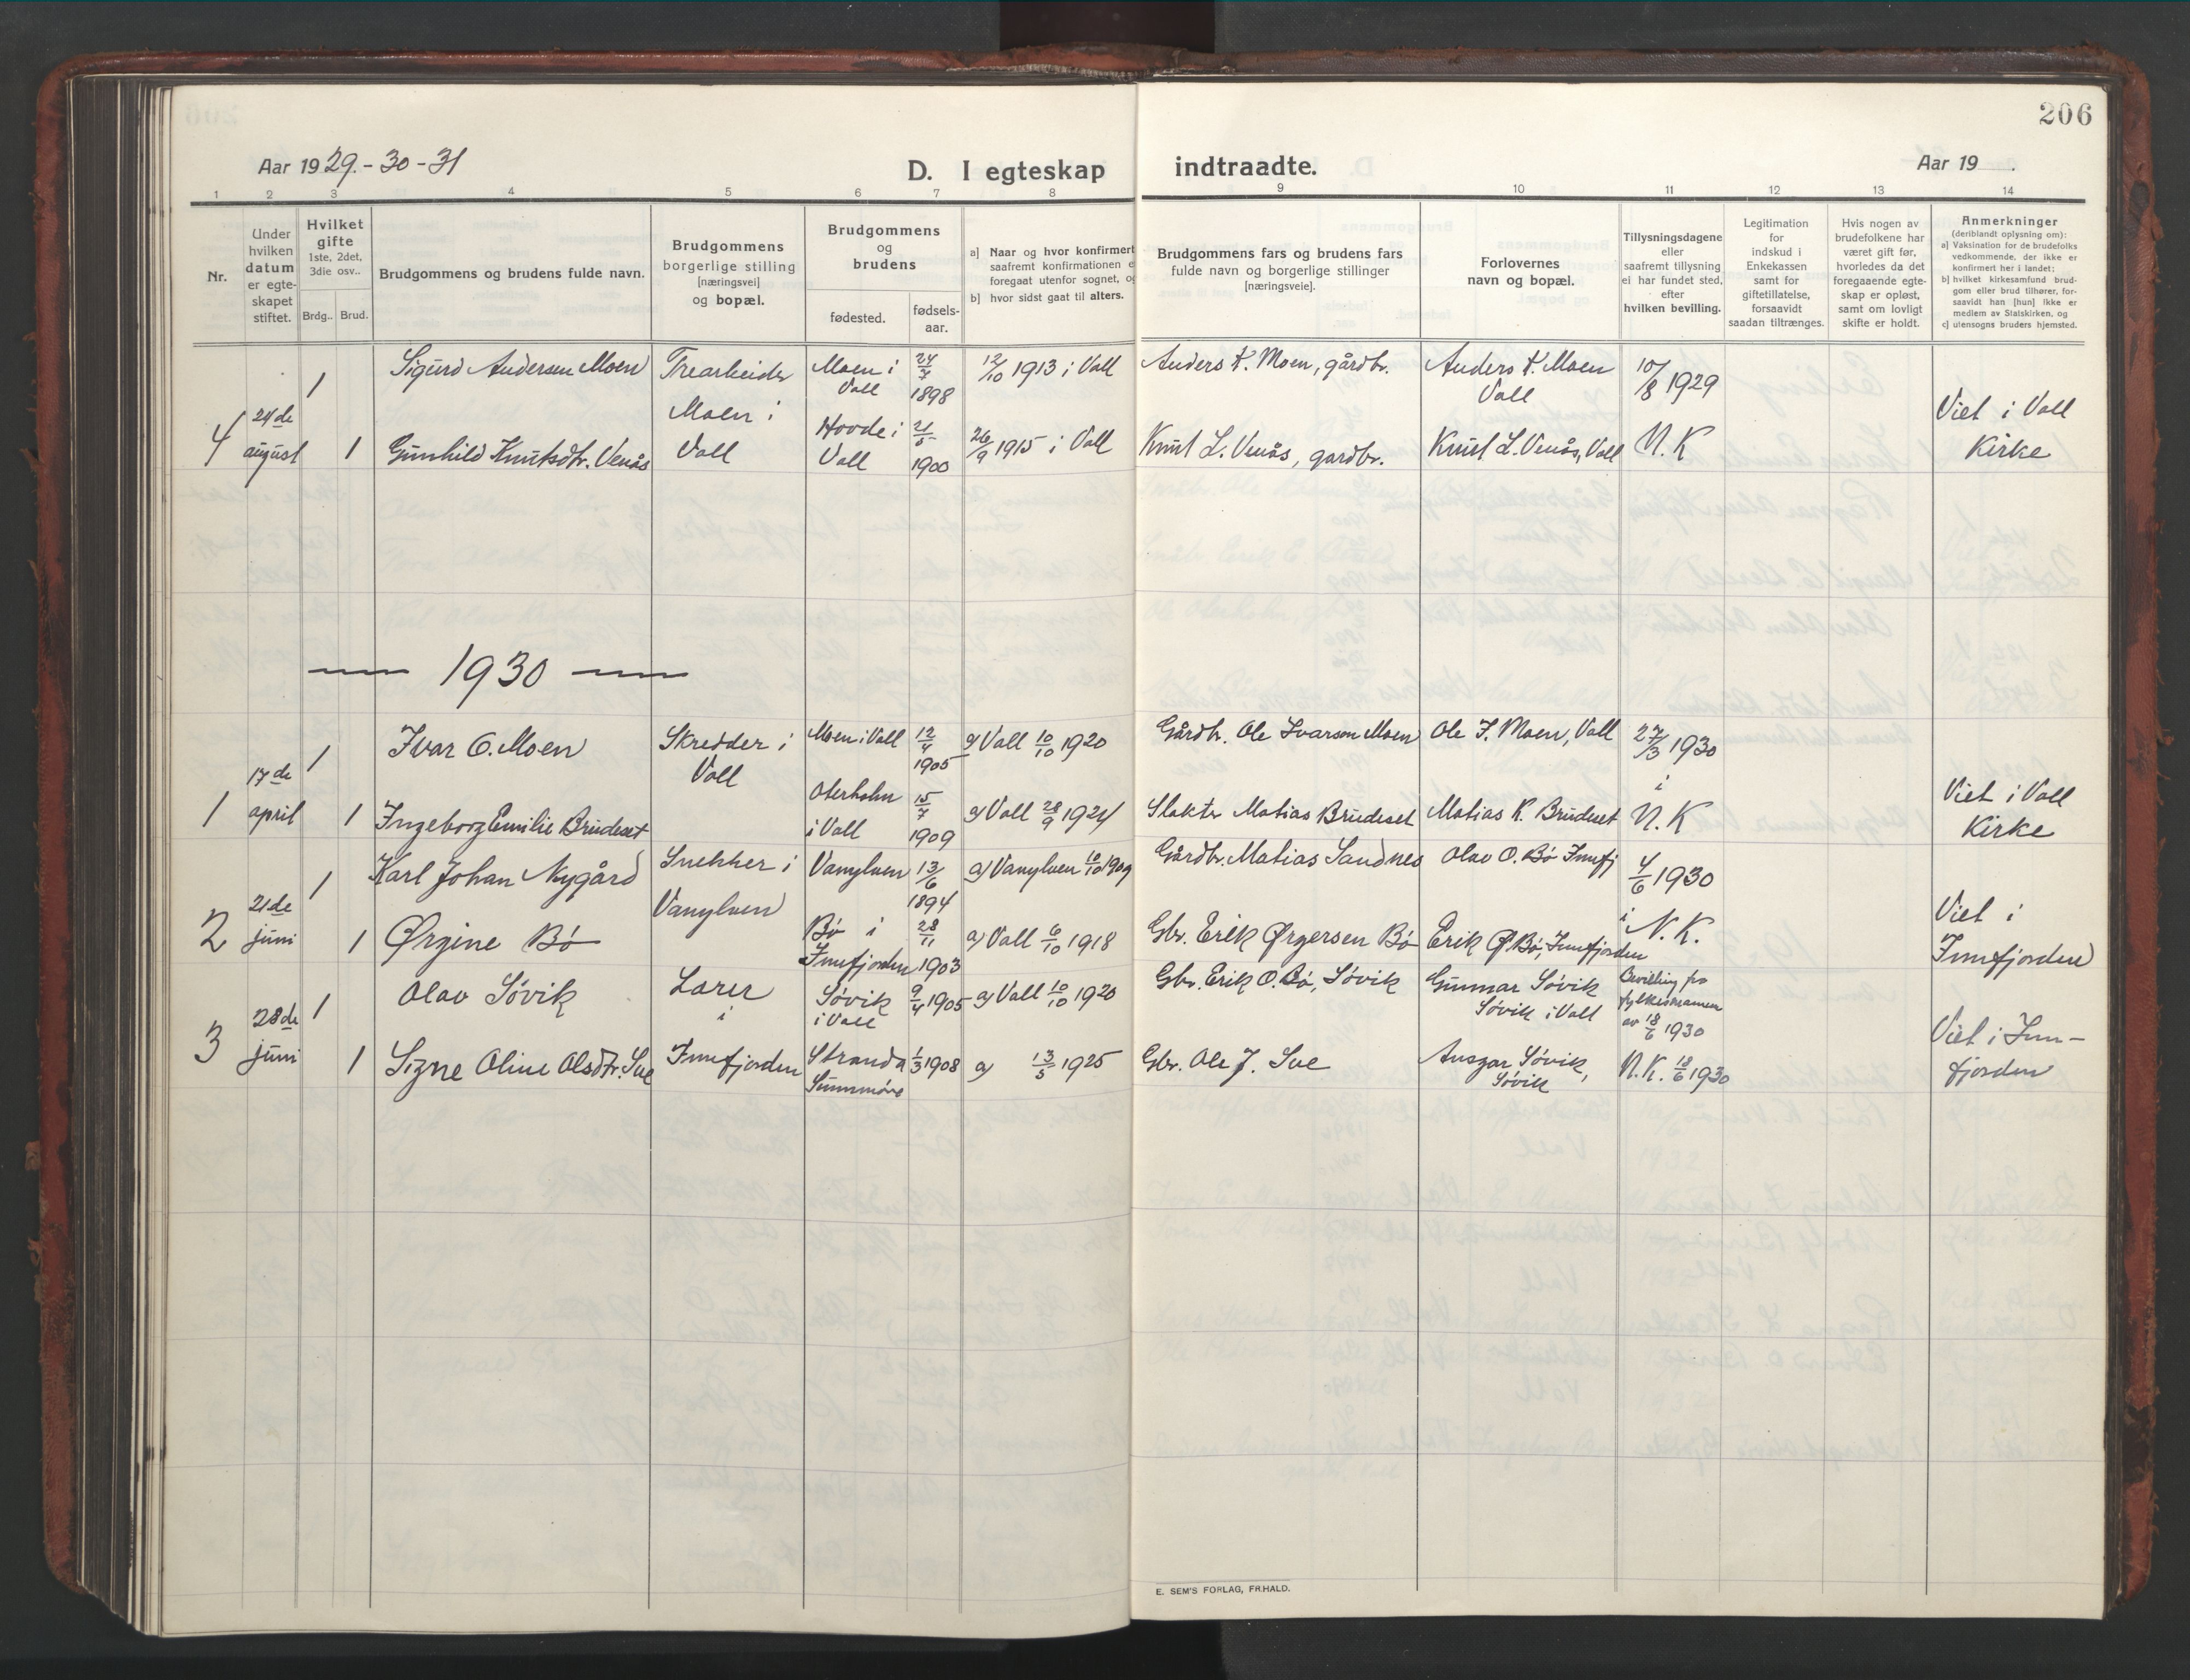 206
Aar 1929.-30-31
D. I egteskap indtraadte.
Aar 19 .
1 2 3 4 5 6 7 8 9 10 11 12 13 14
Nr.
Under
hvilken
datum
er egte-
skapet
stiftet.
Hvilket
gifte
1ste, 2det,
3die osv..
Brdg.. Brud.
Brudgommens og brudens fulde navn.
Brudgommens
borgerlige stilling
[næringsvei]
og bopæl.
Brudgommens
og
brudens
fødested.
fødsels-
aar.
a] Naar og hvor konfirmert
saafremt konfirmationen e
foregaat utenfor sognet, og
b] hvor sidst gaat til alters.
Brudgommens fars og brudens fars
fulde navn og borgerlige stillinger
[næringsveie].
Forlovernes
navn og bopæl.
Tillysningsdagene
eller
saafremt tillysning
ei har fundet sted,
efter
hvilken bevilling.
Legitimation
for
indskud i
Enkekassen
samt for
giftetillatelse,
forsaavidt
saadan tiltrænges.
Hvis nogen av
brudefolkene har
været gift før,
hvorledes da det
foregaaende egte-
skap er opløst,
samt om lovligt
skifte er holdt.
Anmerkninger
(deriblandt oplysning om):
a] Vaksination for de brudefolks
vedkommende, der ikke er
konfirmert her i landet;
b] hvilket kirkesamfund brud-
gom eller brud tilhører, for-
saavidt han [hun] ikke er
medlem av Statskirken, og
c] utensogns bruders hjemsted.
4
24de
august
1
Sigurd Andersen Moen
Trearbeider
Moen i
Voll
Moen i
Voll
24/7
1898
12/10 1913 i Voll
Anders K. Moen, gårdbr.
Anders K. Moen
Voll
10/8 1929
1
Gunhild Knutsdtr. Venås
Hovde i
Voll
21/5
1900
26/9 1915 i Voll
Knut L. Venås, gardbr.
Knut L. Venås, Voll
N.K
Viet i Voll
Kirke
1930
1
17de
april
1
Ivar O. Moen
Skredder i
Voll
Moen i Voll
12/4
1905
a) Voll 10/10 1920
Gårdbr. Ole Ivarsen Moen
Ole I. Moen, Voll
27/3 1930
i
1
Ingeborg Emilie Brudeset
i Voll
15/7
1909
a) Voll 28/9 1924
Slakter Matias Brudeset
Matias K. Brudeset
N.K
Viet i Voll
Kirke
2
21de
juni
1
Karl Johan Nygård
Snekker i
Vanylven
Vanylven
13/6
1894
a) Vanylven 10/10 1909
Gårdbr. Matias Sandnes
Olav O. Bø Innfj
4/6 1930
i
1
Ørgine Bø
Bø i
Innfjorden
28/11
1903
a) Voll 6/10 1918
Gbr. Erik Ørgersen Bø
Erik Ø Bø, Innfjorden
N.K.
Viet i
Innfjorden
3
28de
juni
1
Olav Søvik
Lærer
i
Innfjorden
Søvik
i Voll
9/4 1905
a) Voll 10/10 1920
Gbr. Erik O. Bø, Søvik
Gunnar Søvik
Søvik i Voll
Bevilling fra
fylkesmannen
av 18/6 1930
1
Signe Oline Olsdtr. Sve
Stranda
Sunnmøre
1/3 1908
a) 13/5 1925
Gbr. Ole J. Sve
Ansgar Søvik,
Søvik
N.K. 18/6 1930
Viet i Inn-
fjorden
E. SEM'S FORLAG, FR.HALD.